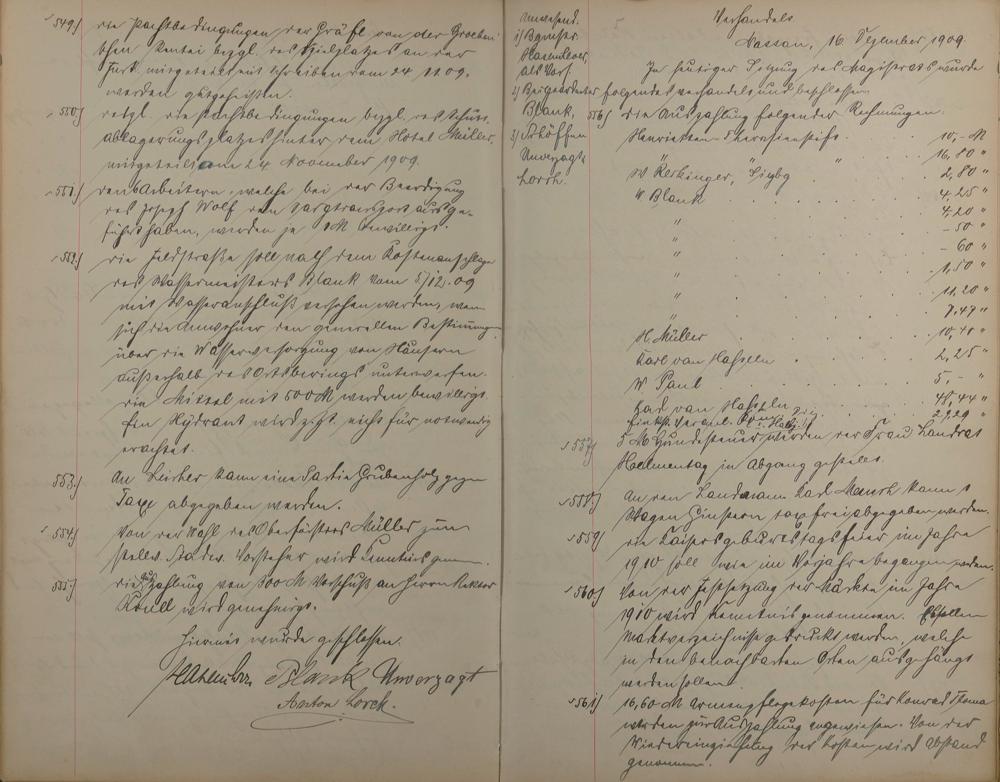 549) die Pachtbedingungen der Gräfl. von der Groeben'
schen Rentei bezgl. des Spielplatzes an der
mitgeteilt mit Schreiben vom 24.11.09.
werden gutgeheißen.
550) desgl. die Pachtbedingungen bezgl. des Schutt-
ablagerungsplatzes hinter dem Hotel Müller,
mitgeteilt am 24 November 1909.
551) den Arbeitern, welche bei der Beerdigung
des Joseph Wolf den Sargtransport ausge-
führt haben, werden je M bewilligt.
552) die Feldstraße soll nach dem Kostenanschlage
des Wassermeisters Blank vom 5/12.09
mit Wasseranschluß versehen werden, wenn
sich die Anwohner den generellen Bestimmungen
über die Wasserversorgung von Häusern
außerhalb des Ortsberings unterwerfen.
die Mittel mit 500 M werden bewilligt.
Ein Hydrant wird z. Zt. nicht für notwendig
erachtet.
553) An kann eine Partie Grubenholz gegen
Taxe abgegeben werden.
554) Von der Wahl des Oberförsters Müller zum
stellv. Vorsteher wird Kenntnis genommen.
555) die Zahlung von 500 M Vorschuß an Herrn Rektor
wird genehmigt.
Hiermit wurde geschlossen.
Hasenclever Blank Unverzagt
Anton Lorch.
Anwesend.
1) Bgmstr.
Hasenclever,
als Vors.
2) Beigeordneter
Blank,
3) Schöffen
Unverzagt
Lorch.
Verhandelt
Nassau, 16 Dezember 1909.
In heutiger Sitzung des Magistrats wurde
folgendes verhandelt und beschlossen
556) die Auszahlung folgender Rechnungen:
Henrietten-Theresienstift 10,- M
" " 16,80 "
W 2,80 "
W Blank 4,25 "
" 4,20 "
" -50 "
" -60 "
" 1,50 "
" 11,20 "
" 7,47 "
H. Müller 10,40 "
Karl von Hasseln 2,25 "
W Paul 5,- "
Karl von Hasseln 48,44 "
29,29 "
557) 5 M Hundesteuer werden der Frau Landrat
in Abgang gestellt.
558) An den Landmann Karl kann 1
Wagen Ginstern taxfrei abgegeben werden.
559) die Kaisersgeburtstagsfeier im Jahre
1910 soll wie im Vorjahre begangen werden.
560) Von der Festsetzung der Märkte im Jahre
1910 wird Kenntnis genommen. Es sollen
Marktverzeichnisse gedruckt werden, welche
in den benachbarten Orten ausgehängt
werden sollen.
561) 16,60 M Armenpflegekosten für Konrad
werden zur Auszahlung angewiesen. Von der
Wiedereinziehung der Kosten wird Abstand
genommen.